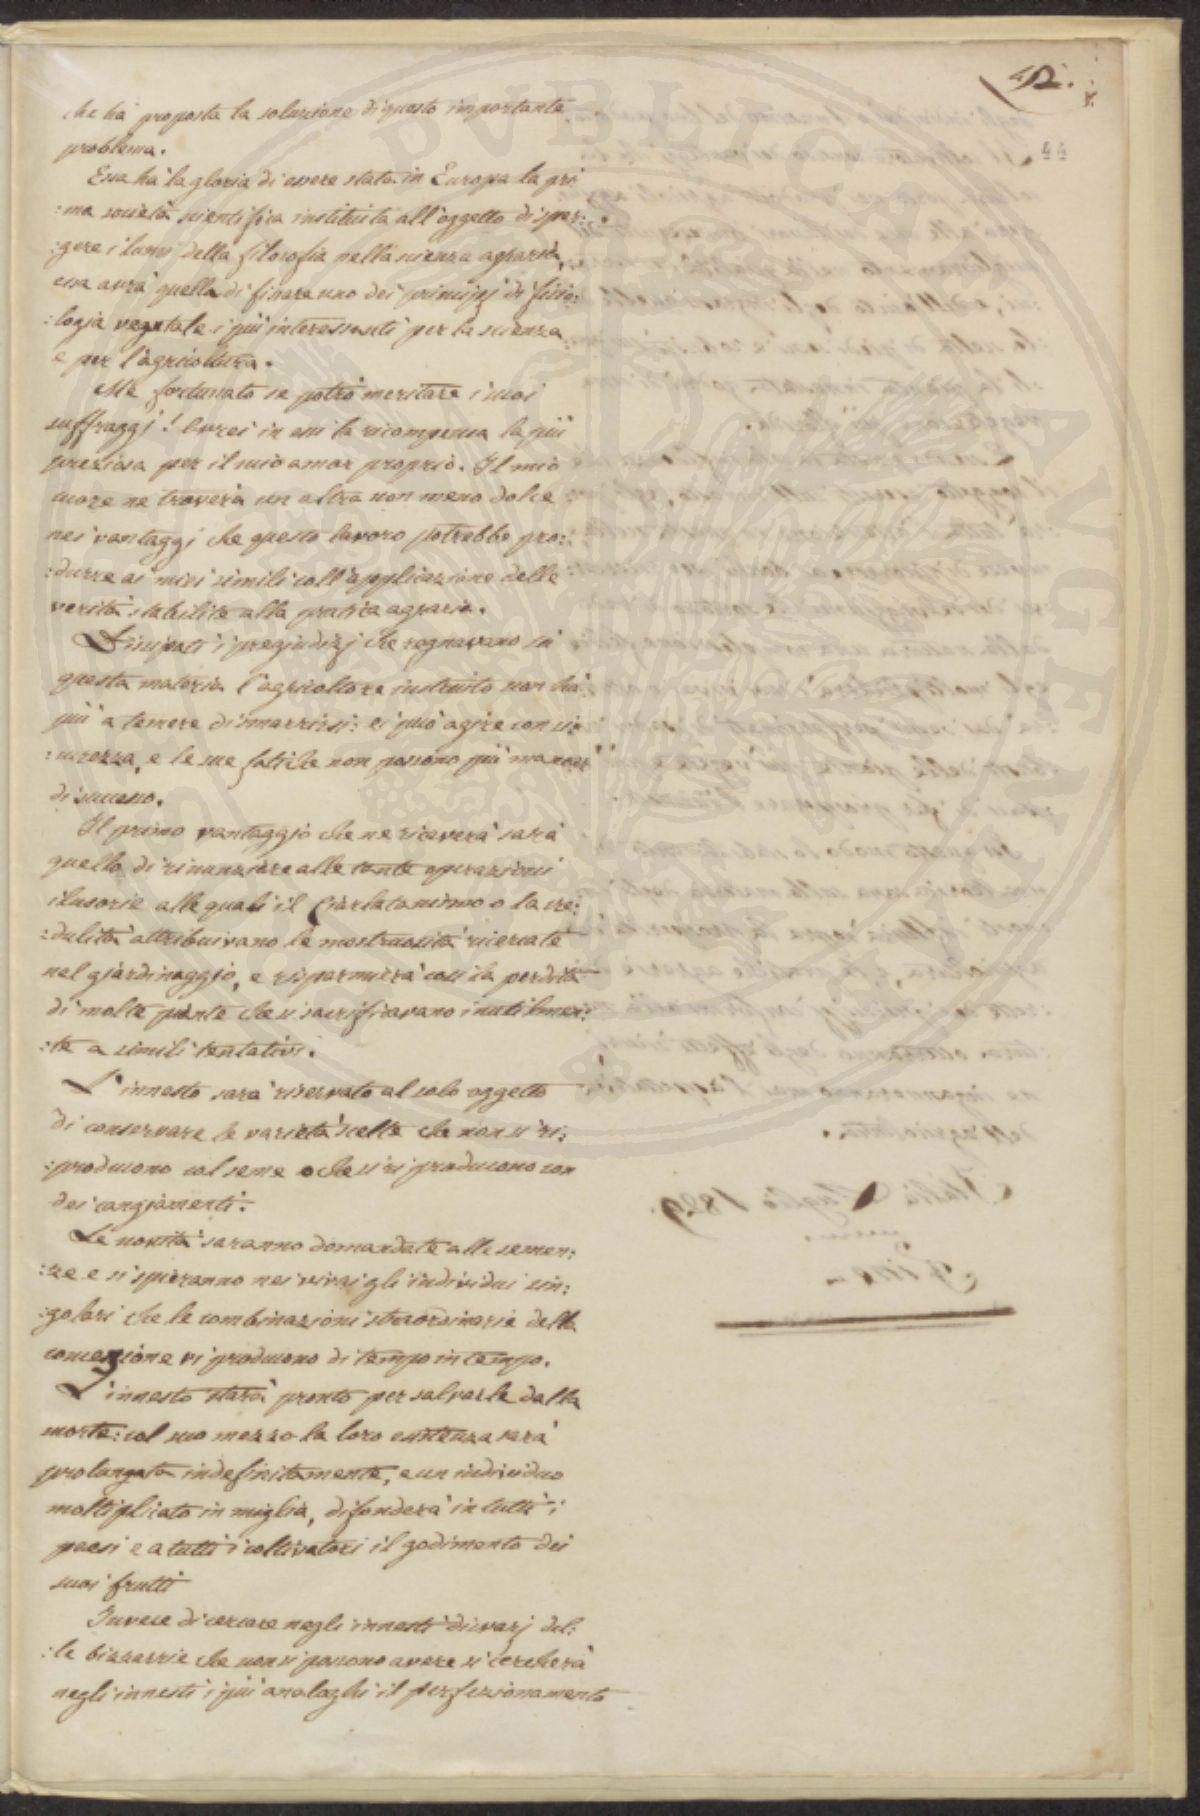 42.
44
che ha proposta la soluzione di questo importante
problema.
Essa ha la gloria di essere stata in Europa la pri
:ma società scientifica instituita all'oggetto di sper:
:gere i lumi della filosofia nella scienza agraria,
essa avrà quella di fissare uno dei principj di fisio:
:logia vegetale i più interessanti per la scienza
e per l'agricoltura.
Me fortunato se potrò meritare i suoi
suffraggj! Avrei in essi la ricompensa la più
preziosa per il mio amor proprio. Il mio
cuore ne troverà un altra non meno dolce
nei vantaggj che questo lavoro potrebbe pro:
:durre ai miei simili coll'applicazione delle
verità stabilite alla pratica agraria.
Dissipati i pregiudizj che regnavano in
questa materia l'agricoltore instruito non ha
più a temere di smarrirsi: ei può agire con si:
:curezza, e le sue fatiche non possono più mancar
di successo.
Il primo vantaggio che ne ricaverà sarà
quello di rinunziare alle tante operazioni
illusorie alle quali il Ciarlatanismo o la cre:
:dulità attribuivano le mostruosità ricercate
nel giardinaggio, e risparmierà così la perdita
di molte piante che si sacrificavano inutilmen:
:te a simili tentativi.
L'innesto sarà riservato al solo oggetto
di conservare le varietà scelte che non si ri:
:producono col seme o che si riproducono con
dei cangiamenti.
Le novità saranno domandate alle semen:
:ze e si spieranno nei vivai gli individui sin:
:golari che le combinazioni straordinarie della
concezione vi producono di tempo in tempo.
L'innesto starà pronto per salvarle dalla
morte: col suo mezzo la loro esistenza sarà
prolungata indefinitamente, e un individuo
moltiplicato in miglia, difonderà in tutti i
paesi e a tutti i coltivatori il godimento dei
suoi frutti
Invece di cercare negli innesti divarj del:
:le bizzarrie che non si possono avere si cercherà
negli innesti i più analoghi il perfezionamento